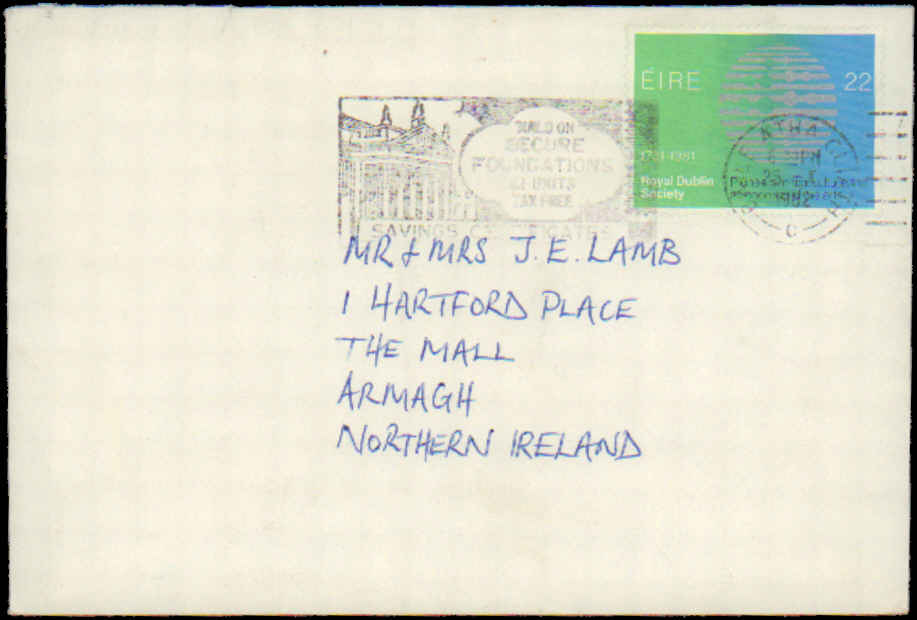 ÉIRE 22
1731-1981
Royal Dublin
Society
BUILD ON
SECURE
FOUNDATIONS
£1 UNITS
TAX FREE
SAVINGS CERTIFICATES
ATHA CLI
PM
1982
MR & MRS J. E. LAMB
1 HARTFORD PLACE
THE MALL
ARMAGH
NORTHERN IRELAND